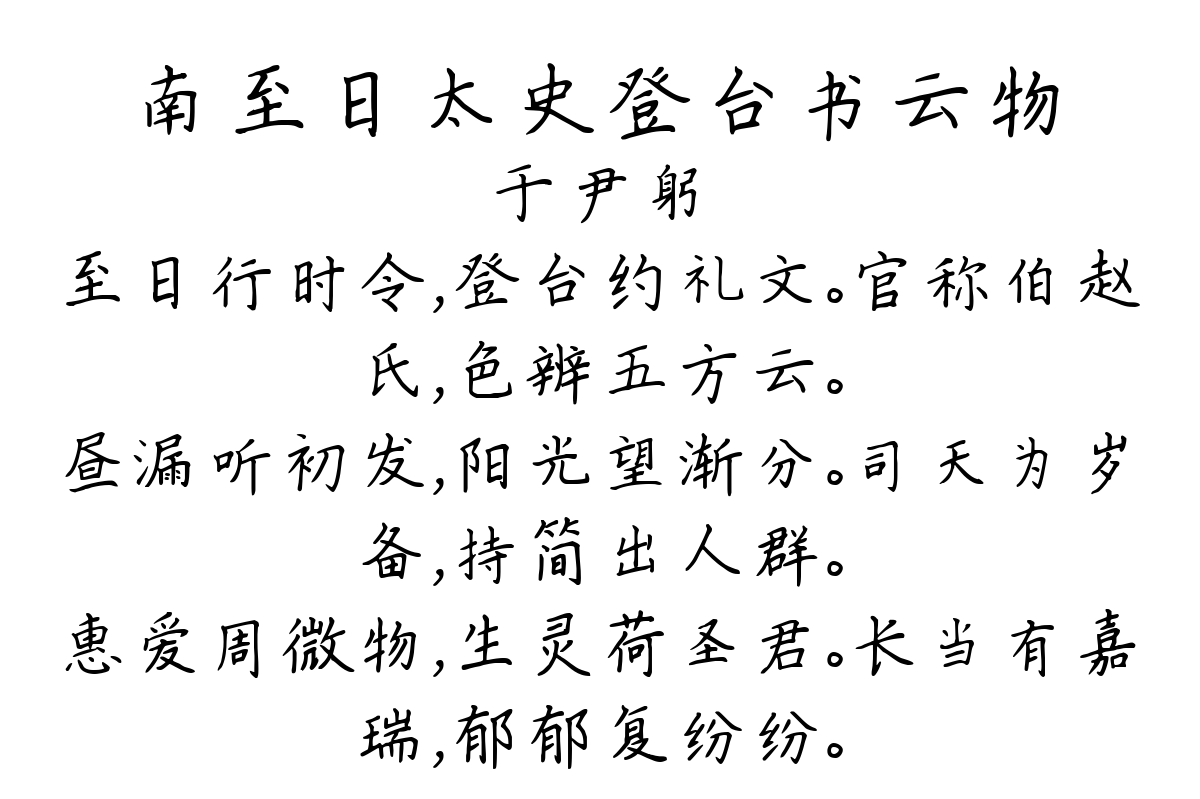 南至日太史登台书云物
于尹躬
至日行时令,登台约礼文。官称伯赵
氏,色辨五方云。
昼漏听初发,阳光望渐分。司天为岁
备,持简出人群。
惠爱周微物,生灵荷圣君。长当有嘉
瑞,郁郁复纷纷。